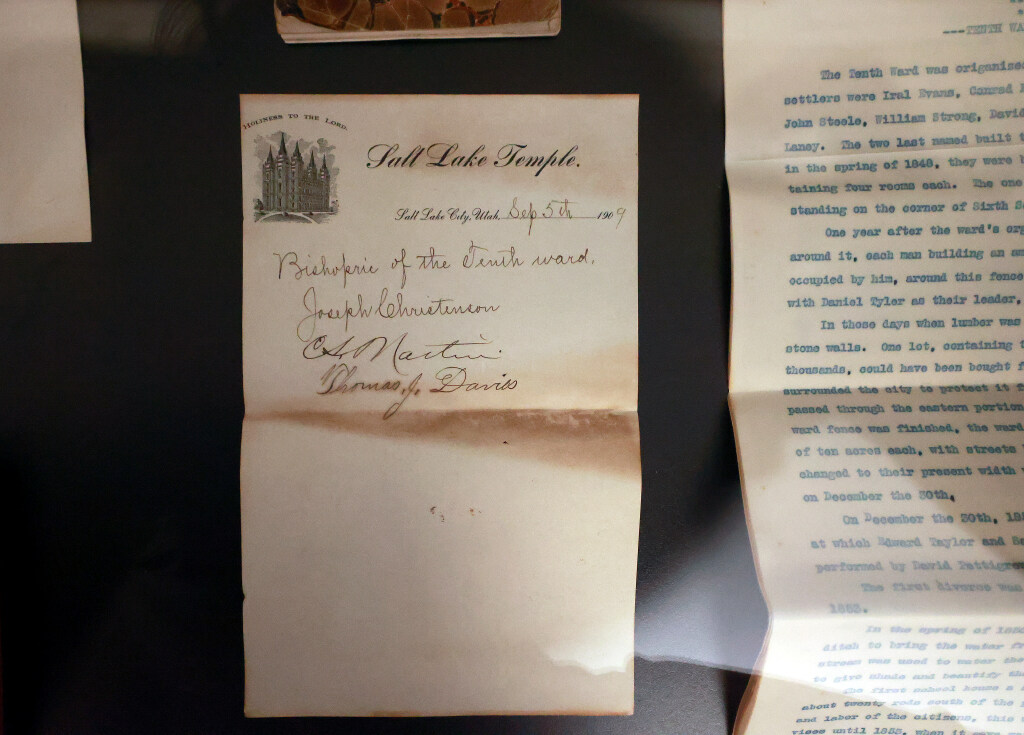 HOLINESS TO THE LORD.
Salt Lake Temple.
Salt Lake City, Utah, Sep 5th 1909
Bishopric of the Tenth ward.
Joseph Christenson
C S Martin
Thomas. J. Davies
---TENTH WA
The Tenth Ward was origanised
settlers were Iral Evans, Conrad
John Steele, William Strong, David
Laney. The two last named built
in the spring of 1848, they were
taining four rooms each. The one
standing on the corner of Sixth
One year after the ward's
around it, each man building an
occupied by him, around this fence
with Daniel Tyler as their leader,
In those days when lumber was
stone walls. One lot, containing
thousands, could have been bought
surrounded the city to protect it
passed through the eastern portion
ward fence was finished, the ward
of ten acres each, with streets
changed to their present width
on December the 30th,
On December the 30th,
at which Edward Taylor and
performed by David Pettigrew
The first divorce was
1853.
In the spring of
ditch to bring the water
stream was used to water
to give shade and beautify
The first school house
about twenty rods south of the
and labor of the citizens, this
vices until 1853, when it